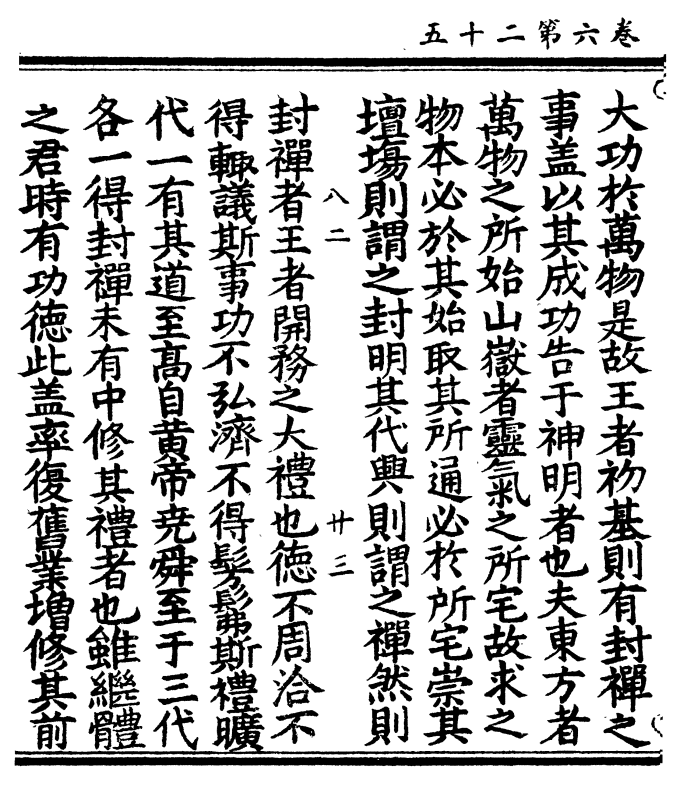 五十二第六卷
大功於萬物是故王者初基則有封禪之
事盖以其成功告于神明者也夫東方者
萬物之所始山嶽者靈氣之所宅故求之
物本必於其始取其所通必於所宅崇其
壇場則謂之封明其代興則謂之禪然則
八二 廿三
封禪者王者開務之大禮也德不周洽不
得輙議斯事功不弘濟不得髣髴斯禮曠
代一有其道至高自黄帝尭舜至于三代
各一得封禪未有中修其禮者也雖繼體
之君時有功德此盖率復舊業增修其前